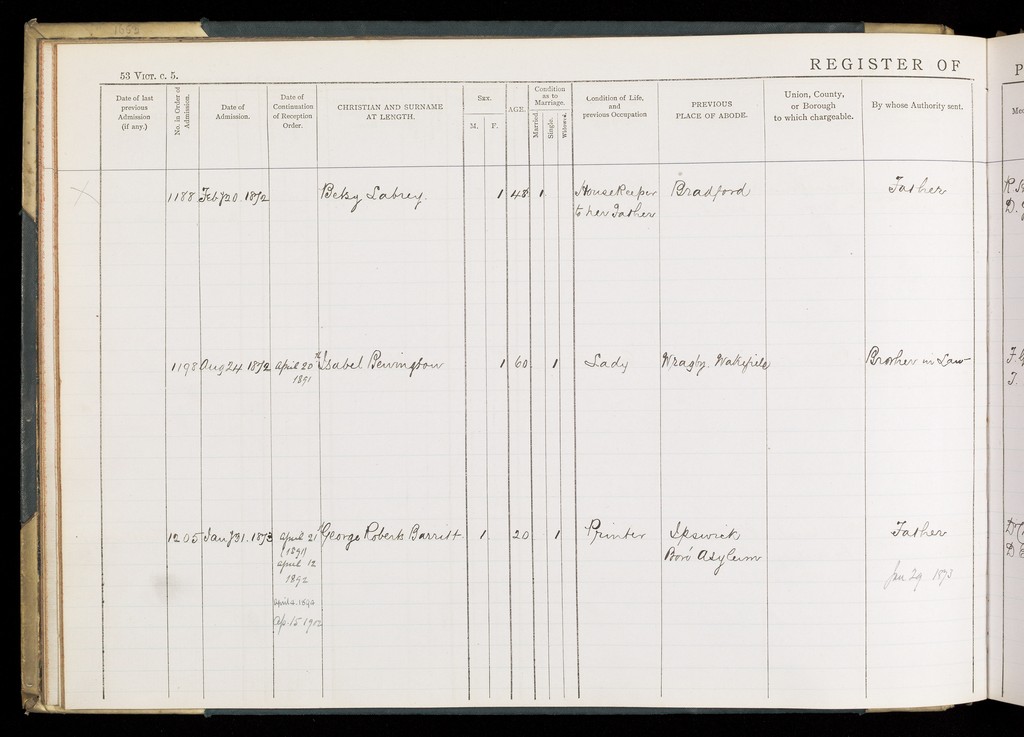 53 VICT. C. 5.
REGISTER OF
P
Date of last previous Admission (if any.)
No. in Order of Admission.
Date of Admission.
Date of Continuation of Reception Order.
CHRISTIAN AND SURNAME AT LENGTH.
SEX.
M. F.
AGE.
Condition as to Marriage.
Married. Single. Widowed.
Condition of Life, and previous Occupation
PREVIOUS PLACE OF ABODE.
Union, County, or Borough to which chargeable.
By whose Authority sent.
1188 Feby 20. 1872 Betsy Labrey. 1 48 1 HouseKeeper Bradford Father
to her Father
1198 Aug 24 1872 April 20th Isabel Pennington 1 60. 1 Lady Wragby. Wakefield Brother in Law
1891
1205 Jany 31. 1873 April 21 George Roberts Barritt. 1 20. 1 Printer Ipswich Father
(1891)
April 12
1892
Boro' Asylum
Jan 29 1873
Ap. 15 1902